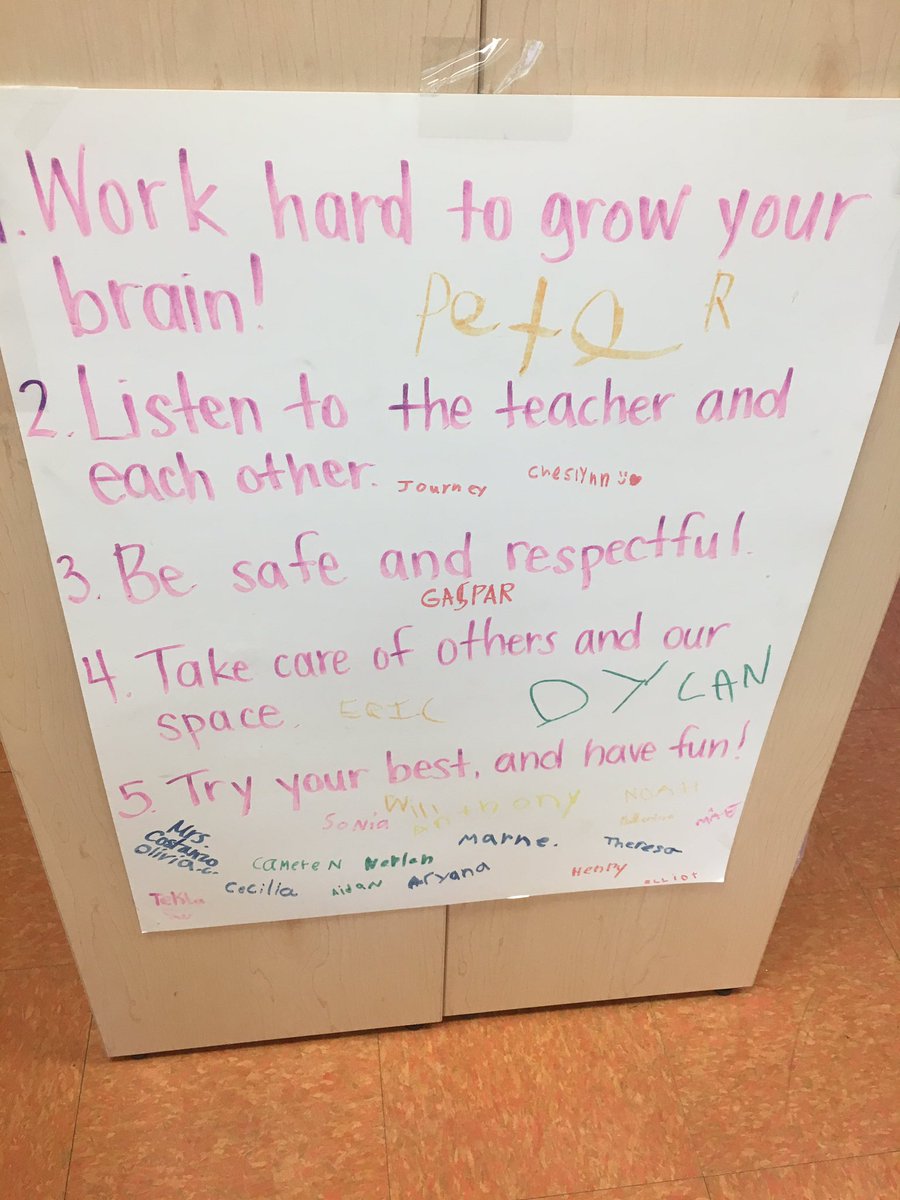 1. Work hard to grow your
brain!
Peter
2. Listen to the teacher and
each other.
Journey
Cheslynn
3. Be safe and respectful.
GASPAR
4. Take care of others and our
space.
ERIC
DYLAN
5. Try your best, and have fun!
Sonia
Will
Anthony
NOAH
MAE
Mrs.
Costanzo
Olivia.c.
Marne.
Theresa
CAMEREN
Harlan
Cecilia
AidaN
Aryana
Henry
ELLIOT
Tekla